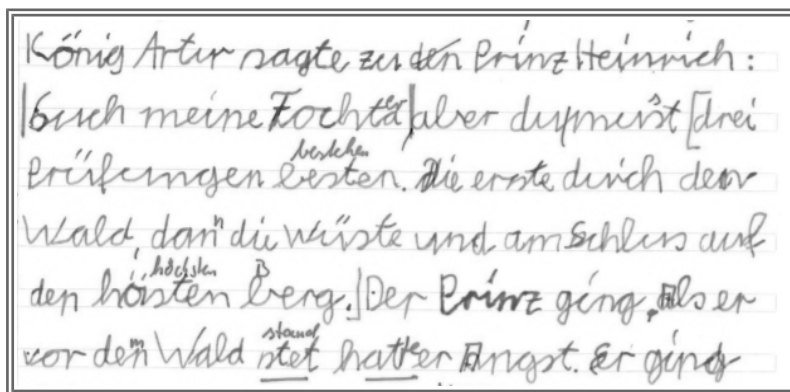 König Artur sagte zu den Prinz Heinrich:
such meine Tochter aber du must drei
bestehen
Prüfungen besten. Die erste durch den
Wald, dann die Wüste und am Schluss auf
höchsten B
den höisten berg. Der Prinz ging. Als er
stand
vor dem Wald stet hatte er Angst. Er ging